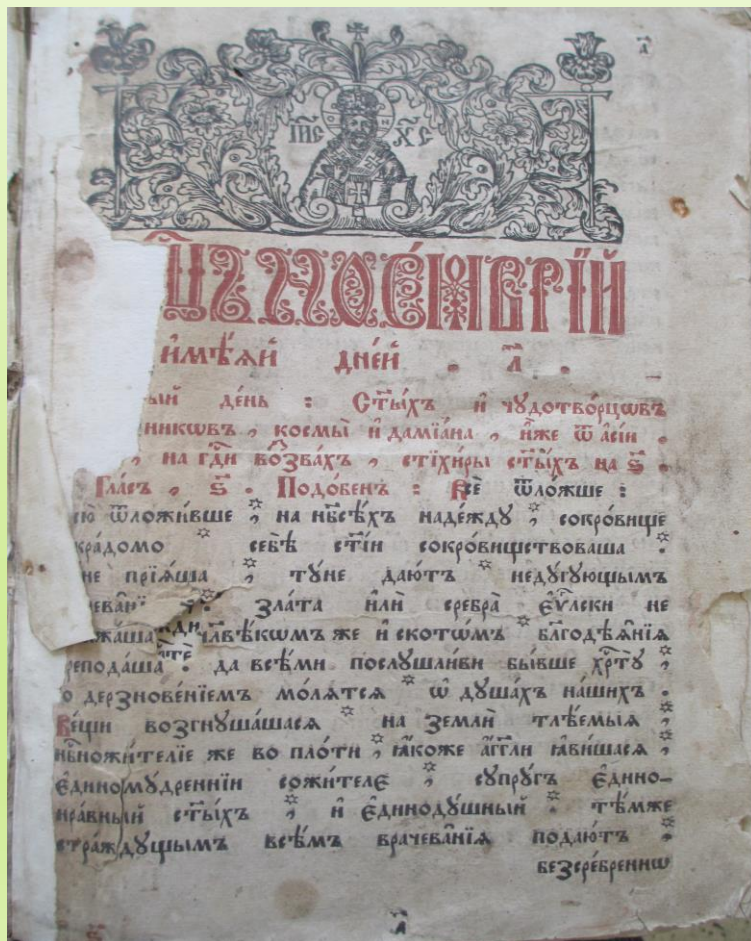 а҃
І҆И҃С Х҃С
мцⷭ҇ъ ноеⷨ҇врїй
и҆мѣѧй дне́й . л҃ .
ый де́нь : Ст҃ы́хъ и҆ чꙋдотво́рцѡвъ
никѡвъ , космы̀ и҆ дамїа́на , и҆̀же ѿ а҆сі́и .
, на гдⷭ҇и во́ззвахъ , стїхи́ры ст҃ы́хъ на ѕ҃ .
Гла́съ , ѕ҃ . Подо́бенъ : Всѐ ѿло́жше :
сю̀ ѿложи́вше , на нб҃сѣ́хъ наде́ждꙋ , сокро́вище
кра́домо * себѣ̀ ст҃і́и сокро́вищствоваша *
не прїѧ́ша , тꙋ́не даю́тъ * недꙋ́гꙋющымъ
зла́та и҆лѝ сребра̀ є҆ѵⷢ҇лски не
жа́ша чл҃вѣ́кѡмъ же и҆ скотѡ́мъ * бл҃годѣѧ̑нїѧ
репода́ша : да всѣ́ми послꙋшли́ви бы́вше хрⷭ҇тꙋ̀ ,
о дерзнове́нїемъ мо́лѧтсѧ * ѡ҆ дꙋша́хъ на́шихъ .
Ве́щи возгнꙋша́шасѧ * на землѝ тлѣ́емыѧ ,
нб҃ножи́телїе же во пло́ти , ꙗ҆́коже а҆́гг҃ли ꙗ҆ви́шасѧ ,
є҆диномꙋ́дреннїи сожи́теле * сꙋпрꙋ́гъ є҆дино-
нра́вный ст҃ы́хъ * и҆ є҆динодꙋ́шный * тѣ́мже
стра́ждꙋщымъ всѣ́мъ врачева̑нїѧ подаю́тъ *
безсре́бренниѡ
а҃